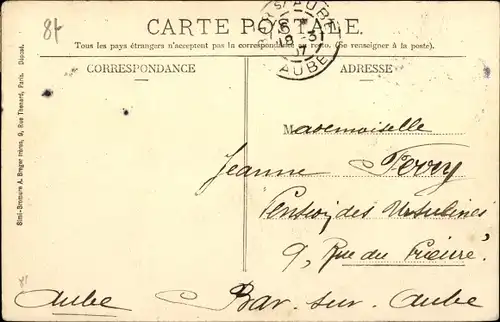 81
CARTE POSTALE.
Tous les pays étrangers n'acceptent pas la correspondance au recto. (Se renseigner à la poste).
AUBE
31
07
AUBE
CORRESPONDANCE
ADRESSE
Simi-Bromure A. Breger frères, 9, Rue Thénard, Paris. Déposé.
Mademoiselle
Jeanne Ferry
Pension des Ursulines
9, Rue du Prieuré,
Aube Bar-sur-Aube